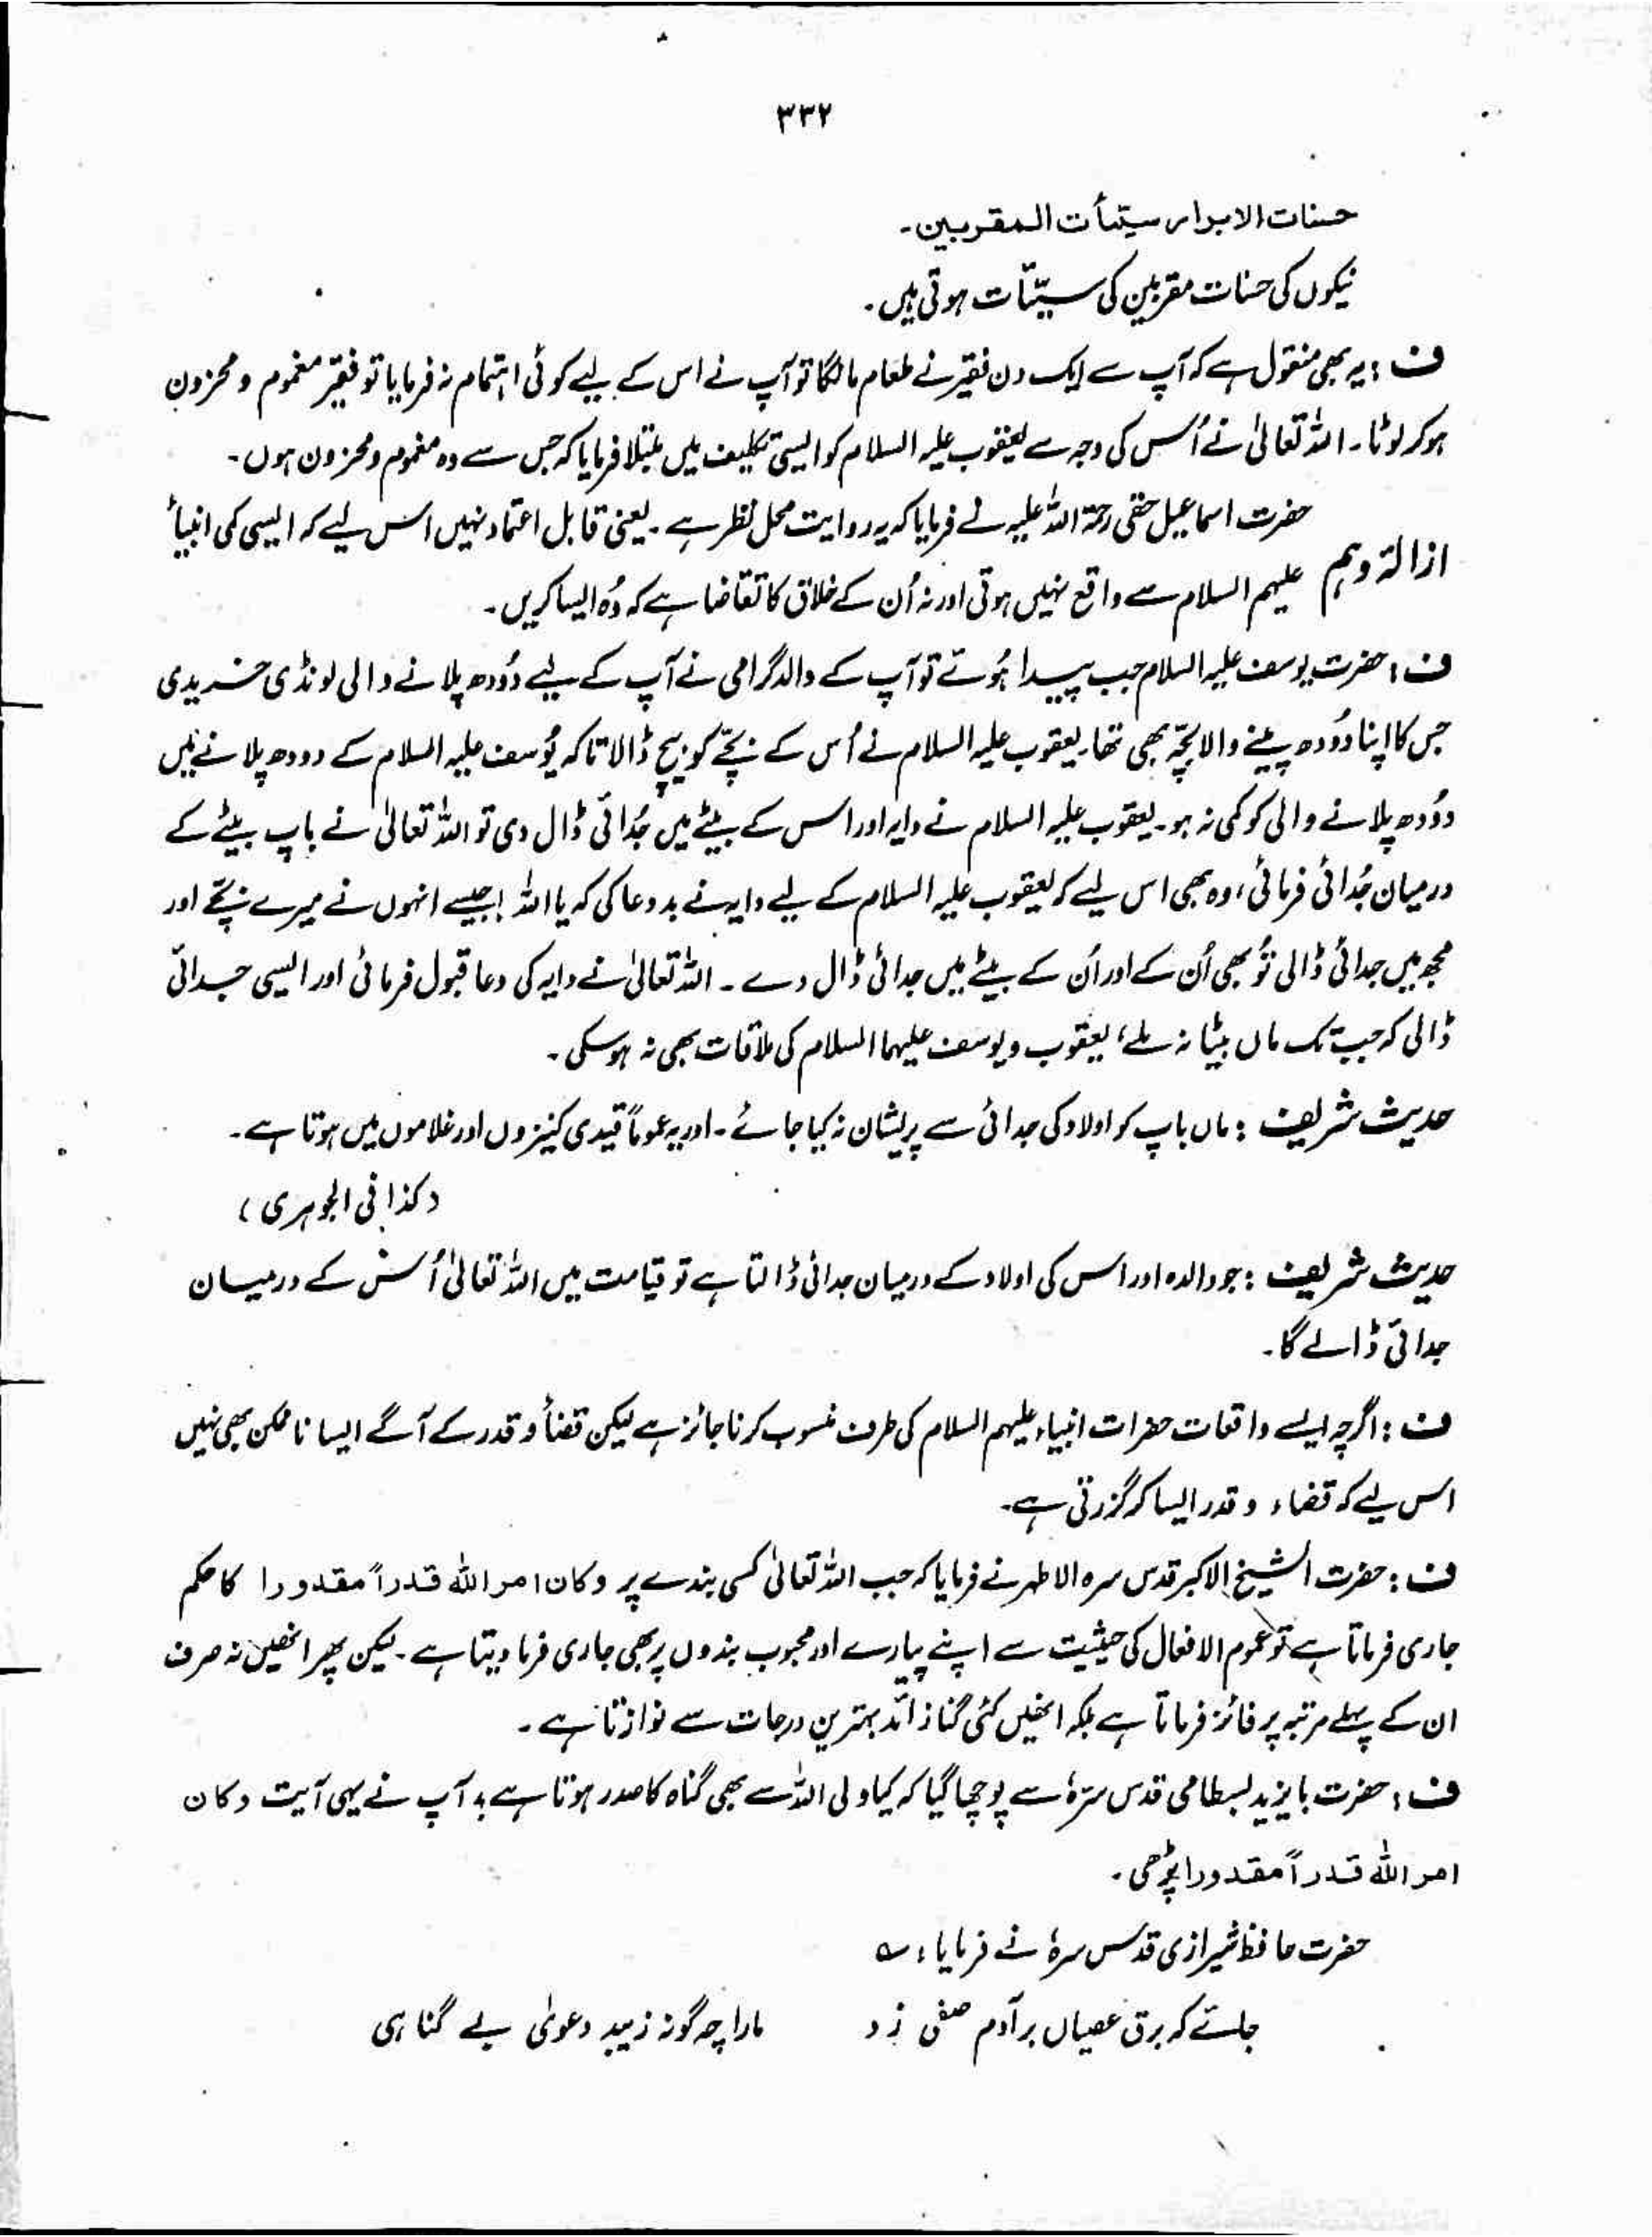 ۳۳۲
حسنات الابرار سیئات المقربین۔
نیکوں کی حسنات مقربین کی سیّئات ہوتی ہیں۔
ف : یہ بھی منقول ہے کہ آپ سے ایک دن فقیر نے طعام مانگا تو آپ نے اس کے لیے کوئی اہتمام نہ فرمایا تو فقیر مغموم و محزون
ہو کر لوٹا۔ اللہ تعالیٰ نے اُس کی وجہ سے یعقوب علیہ السلام کو ایسی تکلیف میں مبتلا فرمایا کہ جس سے وہ مغموم و محزون ہوں۔
حضرت اسماعیل حقی رحمۃ اللہ علیہ نے فرمایا کہ یہ روایت محل نظر ہے۔ یعنی قابل اعتماد نہیں اس لیے کہ ایسی کمی انبیأ
ازالۂ وہم
علیہم السلام سے واقع نہیں ہوتی اور نہ اُن کے خلاق کا تقاضا ہے کہ وُہ ایسا کریں۔
ف : حضرت یوسف علیہ السلام جب پیدا ہُوئے تو آپ کے والد گرامی نے آپ کے لیے دُودھ پلانے والی لونڈی خریدی
جس کا اپنا دُودھ پینے والا بچّہ بھی تھا۔ یعقوب علیہ السلام نے اُس کے بچّے کو بیچ ڈالا تا کہ یُوسف علیہ السلام کے دودھ پلانے میں
دُودھ پلانے والی کو کمی نہ ہو۔ یعقوب علیہ السلام نے دایہ اور اس کے بیٹے میں جُدائی ڈال دی تو اللہ تعالیٰ نے باپ بیٹے کے
درمیان جُدائی فرمائی، وہ بھی اس لیے کہ یعقوب علیہ السلام کے لیے دایہ نے بددعا کی کہ یا اللہ! جیسے انہوں نے میرے بچّے اور
مجھ میں جدائی ڈالی تُو بھی اُن کے اور اُن کے بیٹے میں جدائی ڈال دے۔ اللہ تعالیٰ نے دایہ کی دعا قبول فرمائی اور ایسی جدائی
ڈالی کہ جب تک ماں بیٹا نہ ملے، یعقوب و یوسف علیہما السلام کی ملاقات بھی نہ ہو سکی۔
حدیث شریف : ماں باپ کو اولاد کی جدائی سے پریشان نہ کیا جائے۔ اور یہ عموماً قیدی کنیزوں اور غلاموں میں ہوتا ہے۔
(کذا فی الجوہری)
حدیث شریف : جو والدہ اور اس کی اولاد کے درمیان جدائی ڈالتا ہے تو قیامت میں اللہ تعالیٰ اُس کے درمیان
جدائی ڈالے گا۔
ف : اگرچہ ایسے واقعات حضرات انبیاء علیہم السلام کی طرف منسوب کرنا جائز ہے لیکن قضأ و قدر کے آگے ایسا ناممکن بھی نہیں
اس لیے کہ قضاء و قدر ایسا کر گزرتی ہے۔
ف : حضرت الشیخ الاکبر قدس سرہ الاطہر نے فرمایا کہ جب اللہ تعالیٰ کسی بندے پر وکان امر اللہ قدراً مقدورا کا حکم
جاری فرماتا ہے تو عموم الافعال کی حیثیت سے اپنے پیارے اور محبوب بندوں پر بھی جاری فرما دیتا ہے۔ لیکن پھر انھیں نہ صرف
ان کے پہلے مرتبہ پر فائز فرماتا ہے بلکہ انھیں کئی گنا زائد بہترین درجات سے نوازتا ہے۔
ف : حضرت بایزید بسطامی قدس سرّہٗ سے پوچھا گیا کہ کیا ولی اللہ سے بھی گناہ کا صدور ہوتا ہے؟ آپ نے یہی آیت وکان
امر اللہ قدراً مقدورا پڑھی۔
حضرت حافظ شیرازی قدس سرہٗ نے فرمایا: ؎
جائے کہ برق عصیاں بر آدم صفی زد    مارا چہ گونہ زیبد دعویٰ بے گناہی